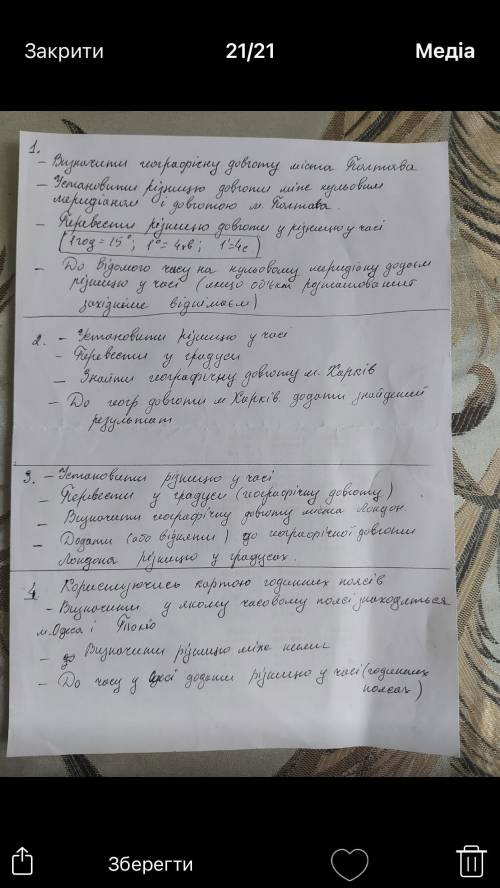 Закрити 21/21 Медіа
1.
- Визначити географічну довготу міста Полтава
- Установити різницю довготи між нульовим
меридіаном і довготою м. Полтава.
- Перевести різницю довготи у різницю у часі
(1год = 15°; 1° = 4хв; 1' = 4с)
- До відомого часу на нульовому меридіані додаєм
різницю у часі (якщо об'єкт розташований
західніше віднімаєм)
2. - Установити різницю у часі
- Перевести у градуси
- Знайти географічну довготу м. Харків
- До геогр. довготи м Харків додати знайдений
результат
3. - Установити різницю у часі
- Перевести у градуси (географічну довготу)
- Визначити географічну довготу міста Лондон.
- Додати (або відняти) до географічної довготи
Лондона різницю у градусах.
4 Користуючись картою годинних поясів
- Визначити у якому часовому поясі знаходяться
м. Одеса і Токіо
- Визначити різницю між ними
- До часу у Одесі додати різницю у часі (годинних
поясах)
Зберегти